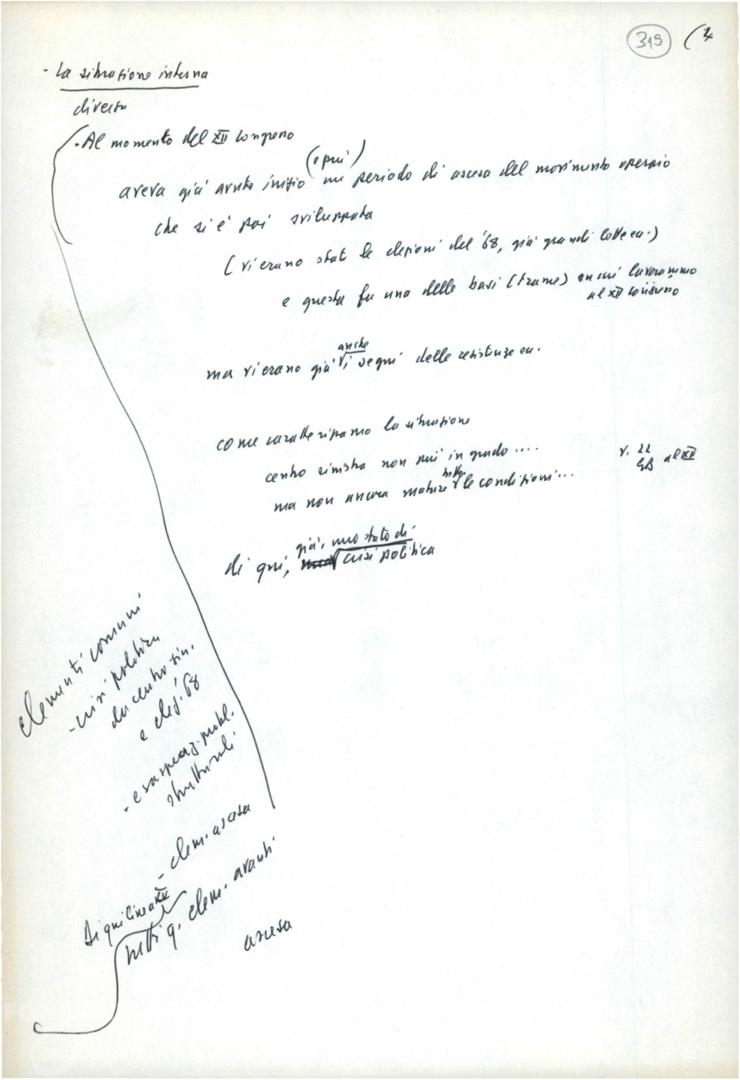 319 (4
- La situazione interna
diversa
. Al momento del XII Congresso
(e più)
aveva già avuto inizio un periodo di ascesa del movimento operaio
che si è poi sviluppata
(vi erano state le elezioni del '68, già grandi lotte ecc.)
e questa fu una delle basi (trame) su cui lavorammo
al XII Congresso
anche
ma vi erano già vi segni delle resistenze ecc.
come caratterizzammo la situazione
centro sinistra non più in grado ....
v. 22 al XII
tutte
ma non ancora mature le condizioni ...
già, uno stato di
di qui, crisi politica
elementi comuni
- crisi politica
da centro sin.
e elez. '68
- esasperaz. probl.
strutturali
- elem. ascesa
Di qui linea XII
tutti q. elem. avanti
ascesa